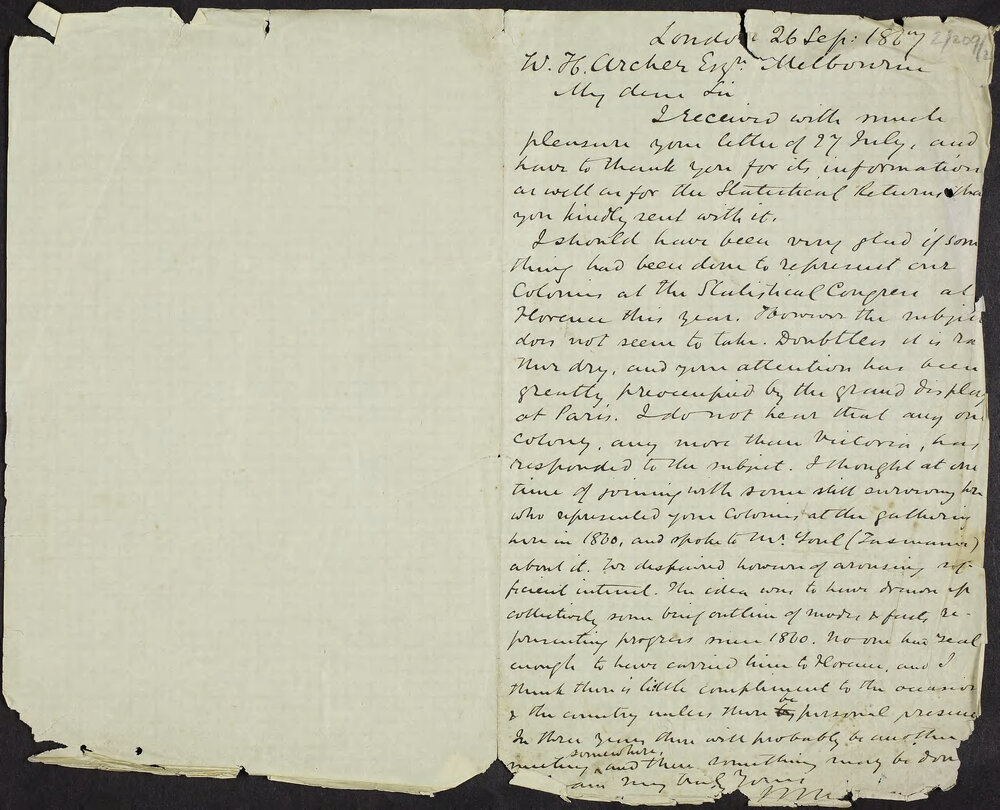 London 26 Sep: 1867
W. H. Archer Esqre Melbourne
My dear Sir
I received with much
pleasure your letter of 27 July, and
have to thank you for its information
as well as for the Statistical Returns tha
you kindly sent with it.
I should have been very glad if som
thing had been done to represent our
Colonies at the Statistical Congress at
Florence this year. However the subject
does not seem to take. Doubtless it is ra
ther dry, and your attention has been
greatly preoccupied by the grand display
at Paris. I do not hear that any one
colony, any more than Victoria, has
responded to the subject. I thought at one
time of joining with some still surviving here
who represented your Colonies at the gathering
here in 1860, and spoke to Mr. Youl (Tasmania)
about it. We despaired however of arousing suf-
ficient interest. The idea was to have drawn up
collectively some brief outline of modes & facts re-
presenting progress since 1860. No one had zeal
enough to have carried him to Florence, and I
think there is little compliment to the occasion
& the country unless there be personal presence
In three years there will probably be another
meeting somewhere, and there something may be done
I am very truly Yours